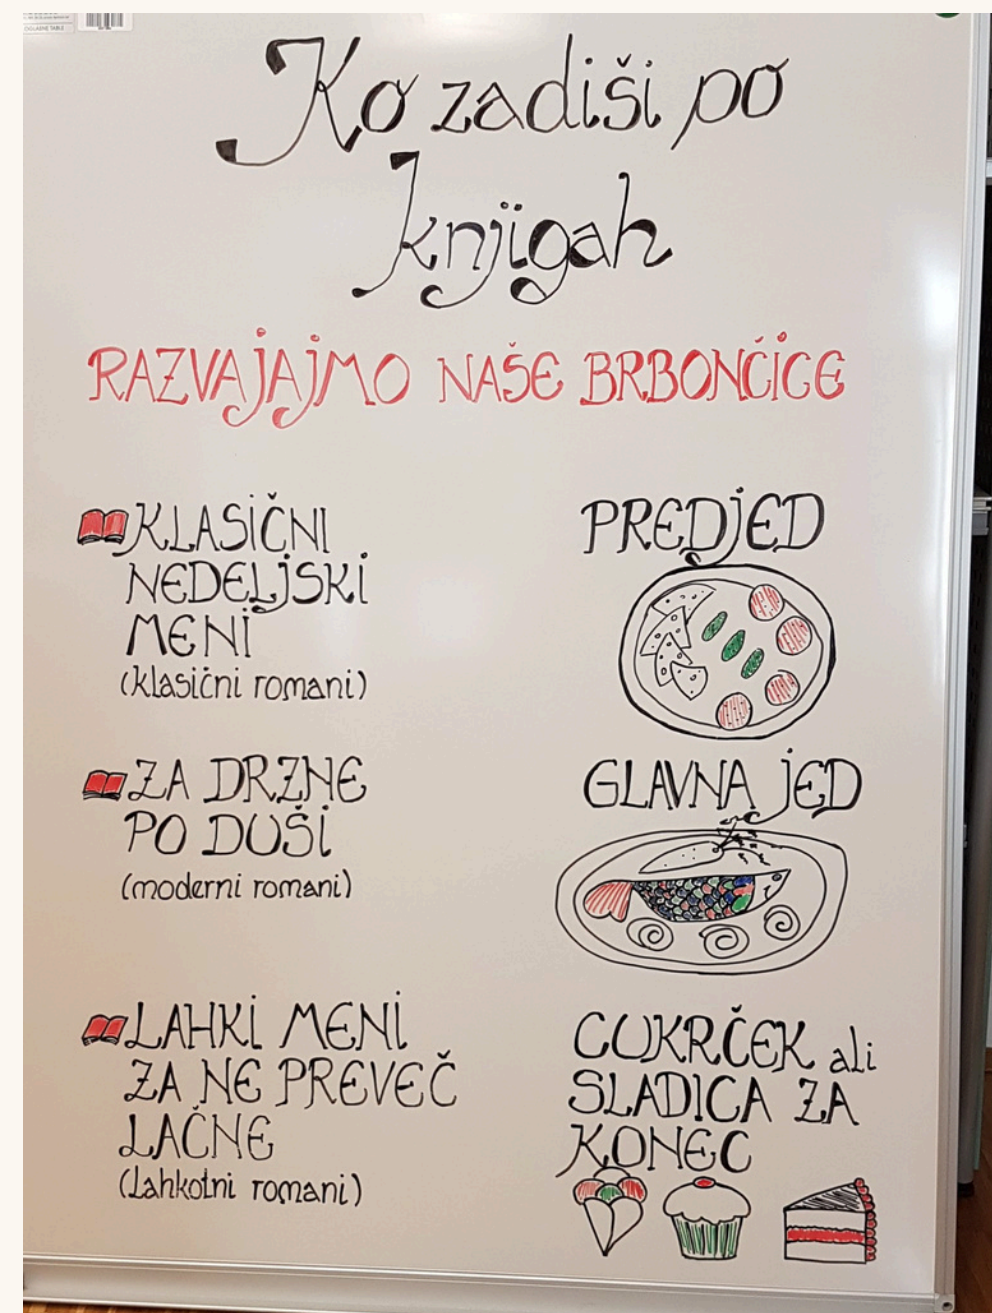 Ko zadiši po
knjigah
RAZVAJAJMO NAŠE BRBONČICE
KLASIČNI
NEDELJSKI
MENI
(klasični romani)
ZA DRZNE
PO DUŠI
(moderni romani)
LAHKI MENI
ZA NE PREVEČ
LAČNE
(Lahkotni romani)
PREDJED
GLAVNA JED
CUKRČEK ali
SLADICA ZA
KONEC